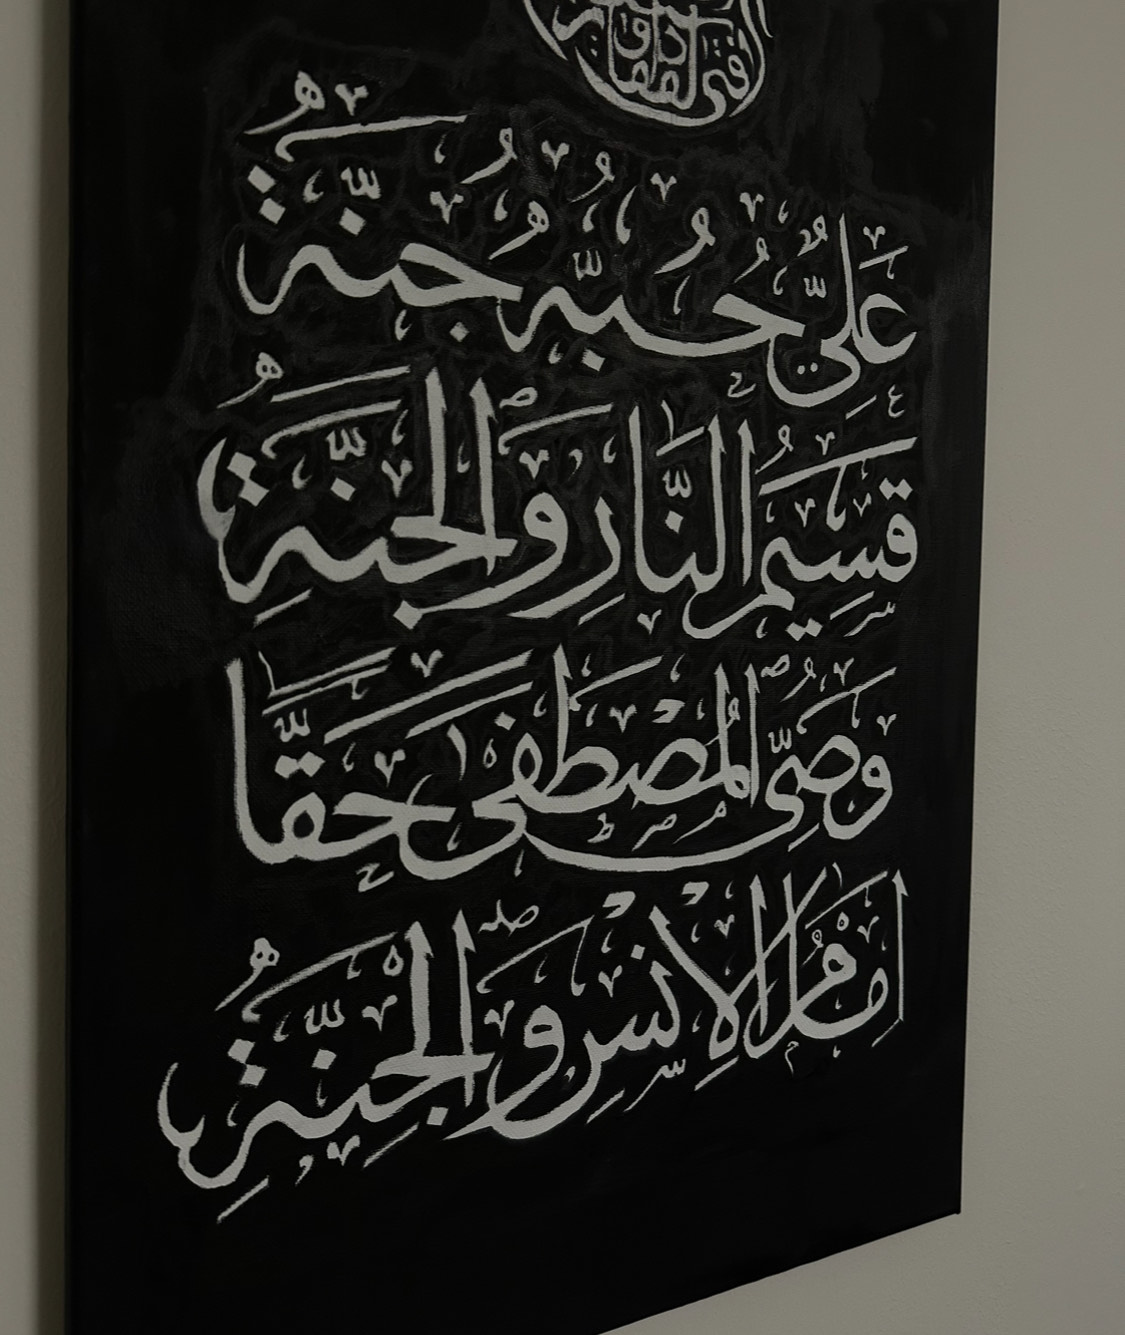 عَلِيٌّ حُبُّهُ جُنَّةٌ
قَسِيمُ النَّارِ وَالْجَنَّةِ
وَصِيُّ الْمُصْطَفَى حَقًّا
إِمَامُ الْإِنْسِ وَالْجِنَّةِ